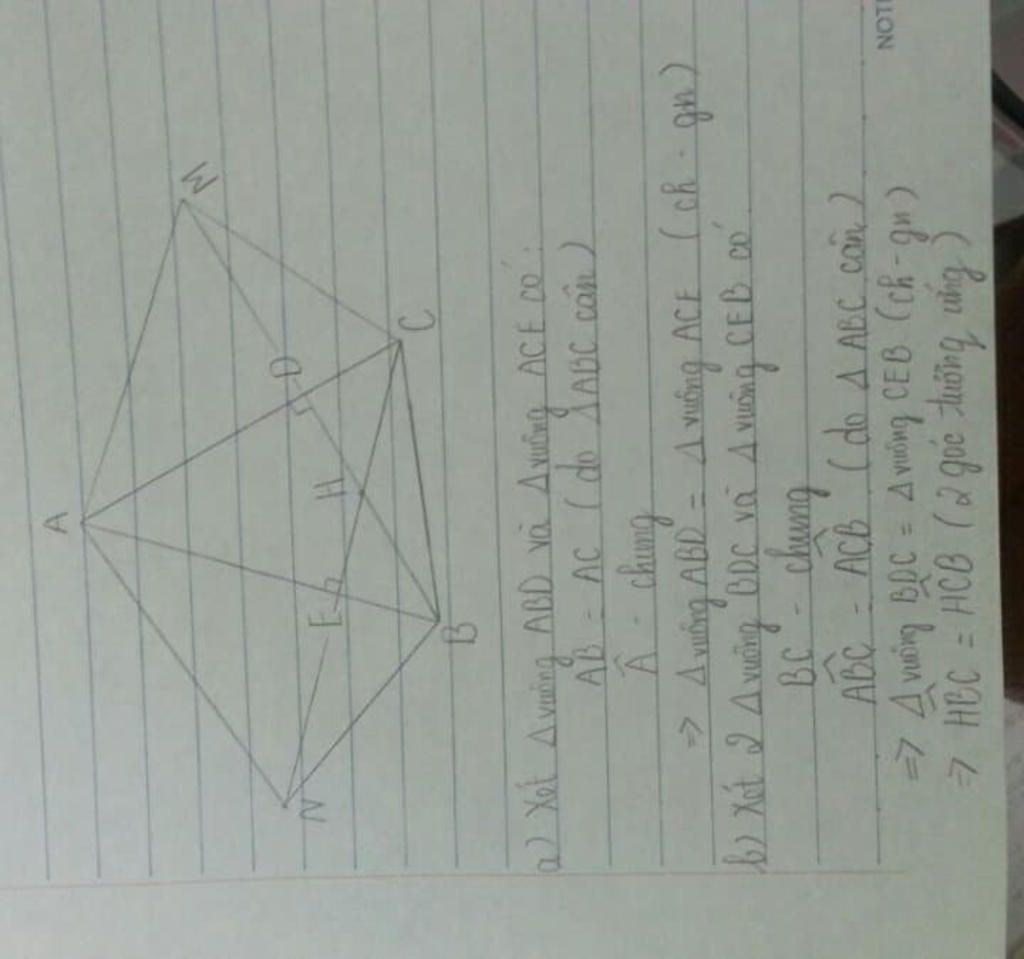 A
M
D
H
E
C
B
N
a) Xét Δ vuông ABD và Δ vuông ACE có:
AB = AC (do ΔABC cân)
Â - chung
=> Δ vuông ABD = Δ vuông ACE (ch - gn)
b) Xét 2 Δ vuông BDC và Δ vuông CEB có
BC - chung
ABC̑ = ACB̑ (do Δ ABC cân)
=> Δ vuông BDC = Δ vuông CEB (ch - gn)
=> HBC̑ = HCB̑ (2 góc tương ứng)